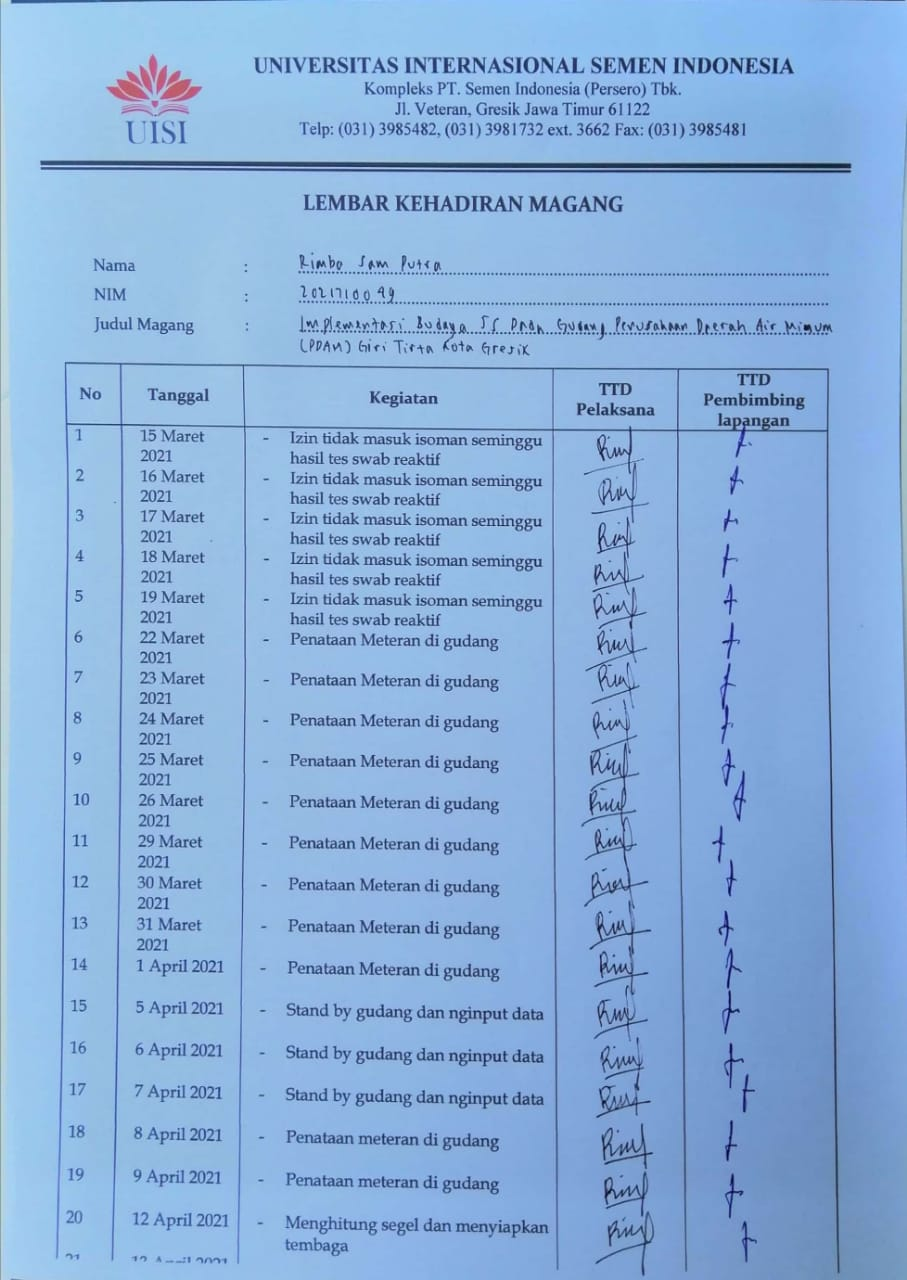 UNIVERSITAS INTERNASIONAL SEMEN INDONESIA
Kompleks PT. Semen Indonesia (Persero) Tbk.
Jl. Veteran, Gresik Jawa Timur 61122
Telp: (031) 3985482, (031) 3981732 ext. 3662 Fax: (031) 3985481
UISI
LEMBAR KEHADIRAN MAGANG
Nama : Rimbo Sam Putra
NIM : 2021710049
Judul Magang : Implementasi Budaya 5S Pada Gudang Perusahaan Daerah Air Minum
(PDAM) Giri Tirta Kota Gresik
No Tanggal Kegiatan TTD Pelaksana TTD Pembimbing lapangan
1 15 Maret 2021 - Izin tidak masuk isoman seminggu hasil tes swab reaktif
2 16 Maret 2021 - Izin tidak masuk isoman seminggu hasil tes swab reaktif
3 17 Maret 2021 - Izin tidak masuk isoman seminggu hasil tes swab reaktif
4 18 Maret 2021 - Izin tidak masuk isoman seminggu hasil tes swab reaktif
5 19 Maret 2021 - Izin tidak masuk isoman seminggu hasil tes swab reaktif
6 22 Maret 2021 - Penataan Meteran di gudang
7 23 Maret 2021 - Penataan Meteran di gudang
8 24 Maret 2021 - Penataan Meteran di gudang
9 25 Maret 2021 - Penataan Meteran di gudang
10 26 Maret 2021 - Penataan Meteran di gudang
11 29 Maret 2021 - Penataan Meteran di gudang
12 30 Maret 2021 - Penataan Meteran di gudang
13 31 Maret 2021 - Penataan Meteran di gudang
14 1 April 2021 - Penataan Meteran di gudang
15 5 April 2021 - Stand by gudang dan nginput data
16 6 April 2021 - Stand by gudang dan nginput data
17 7 April 2021 - Stand by gudang dan nginput data
18 8 April 2021 - Penataan meteran di gudang
19 9 April 2021 - Penataan meteran di gudang
20 12 April 2021 - Menghitung segel dan menyiapkan tembaga